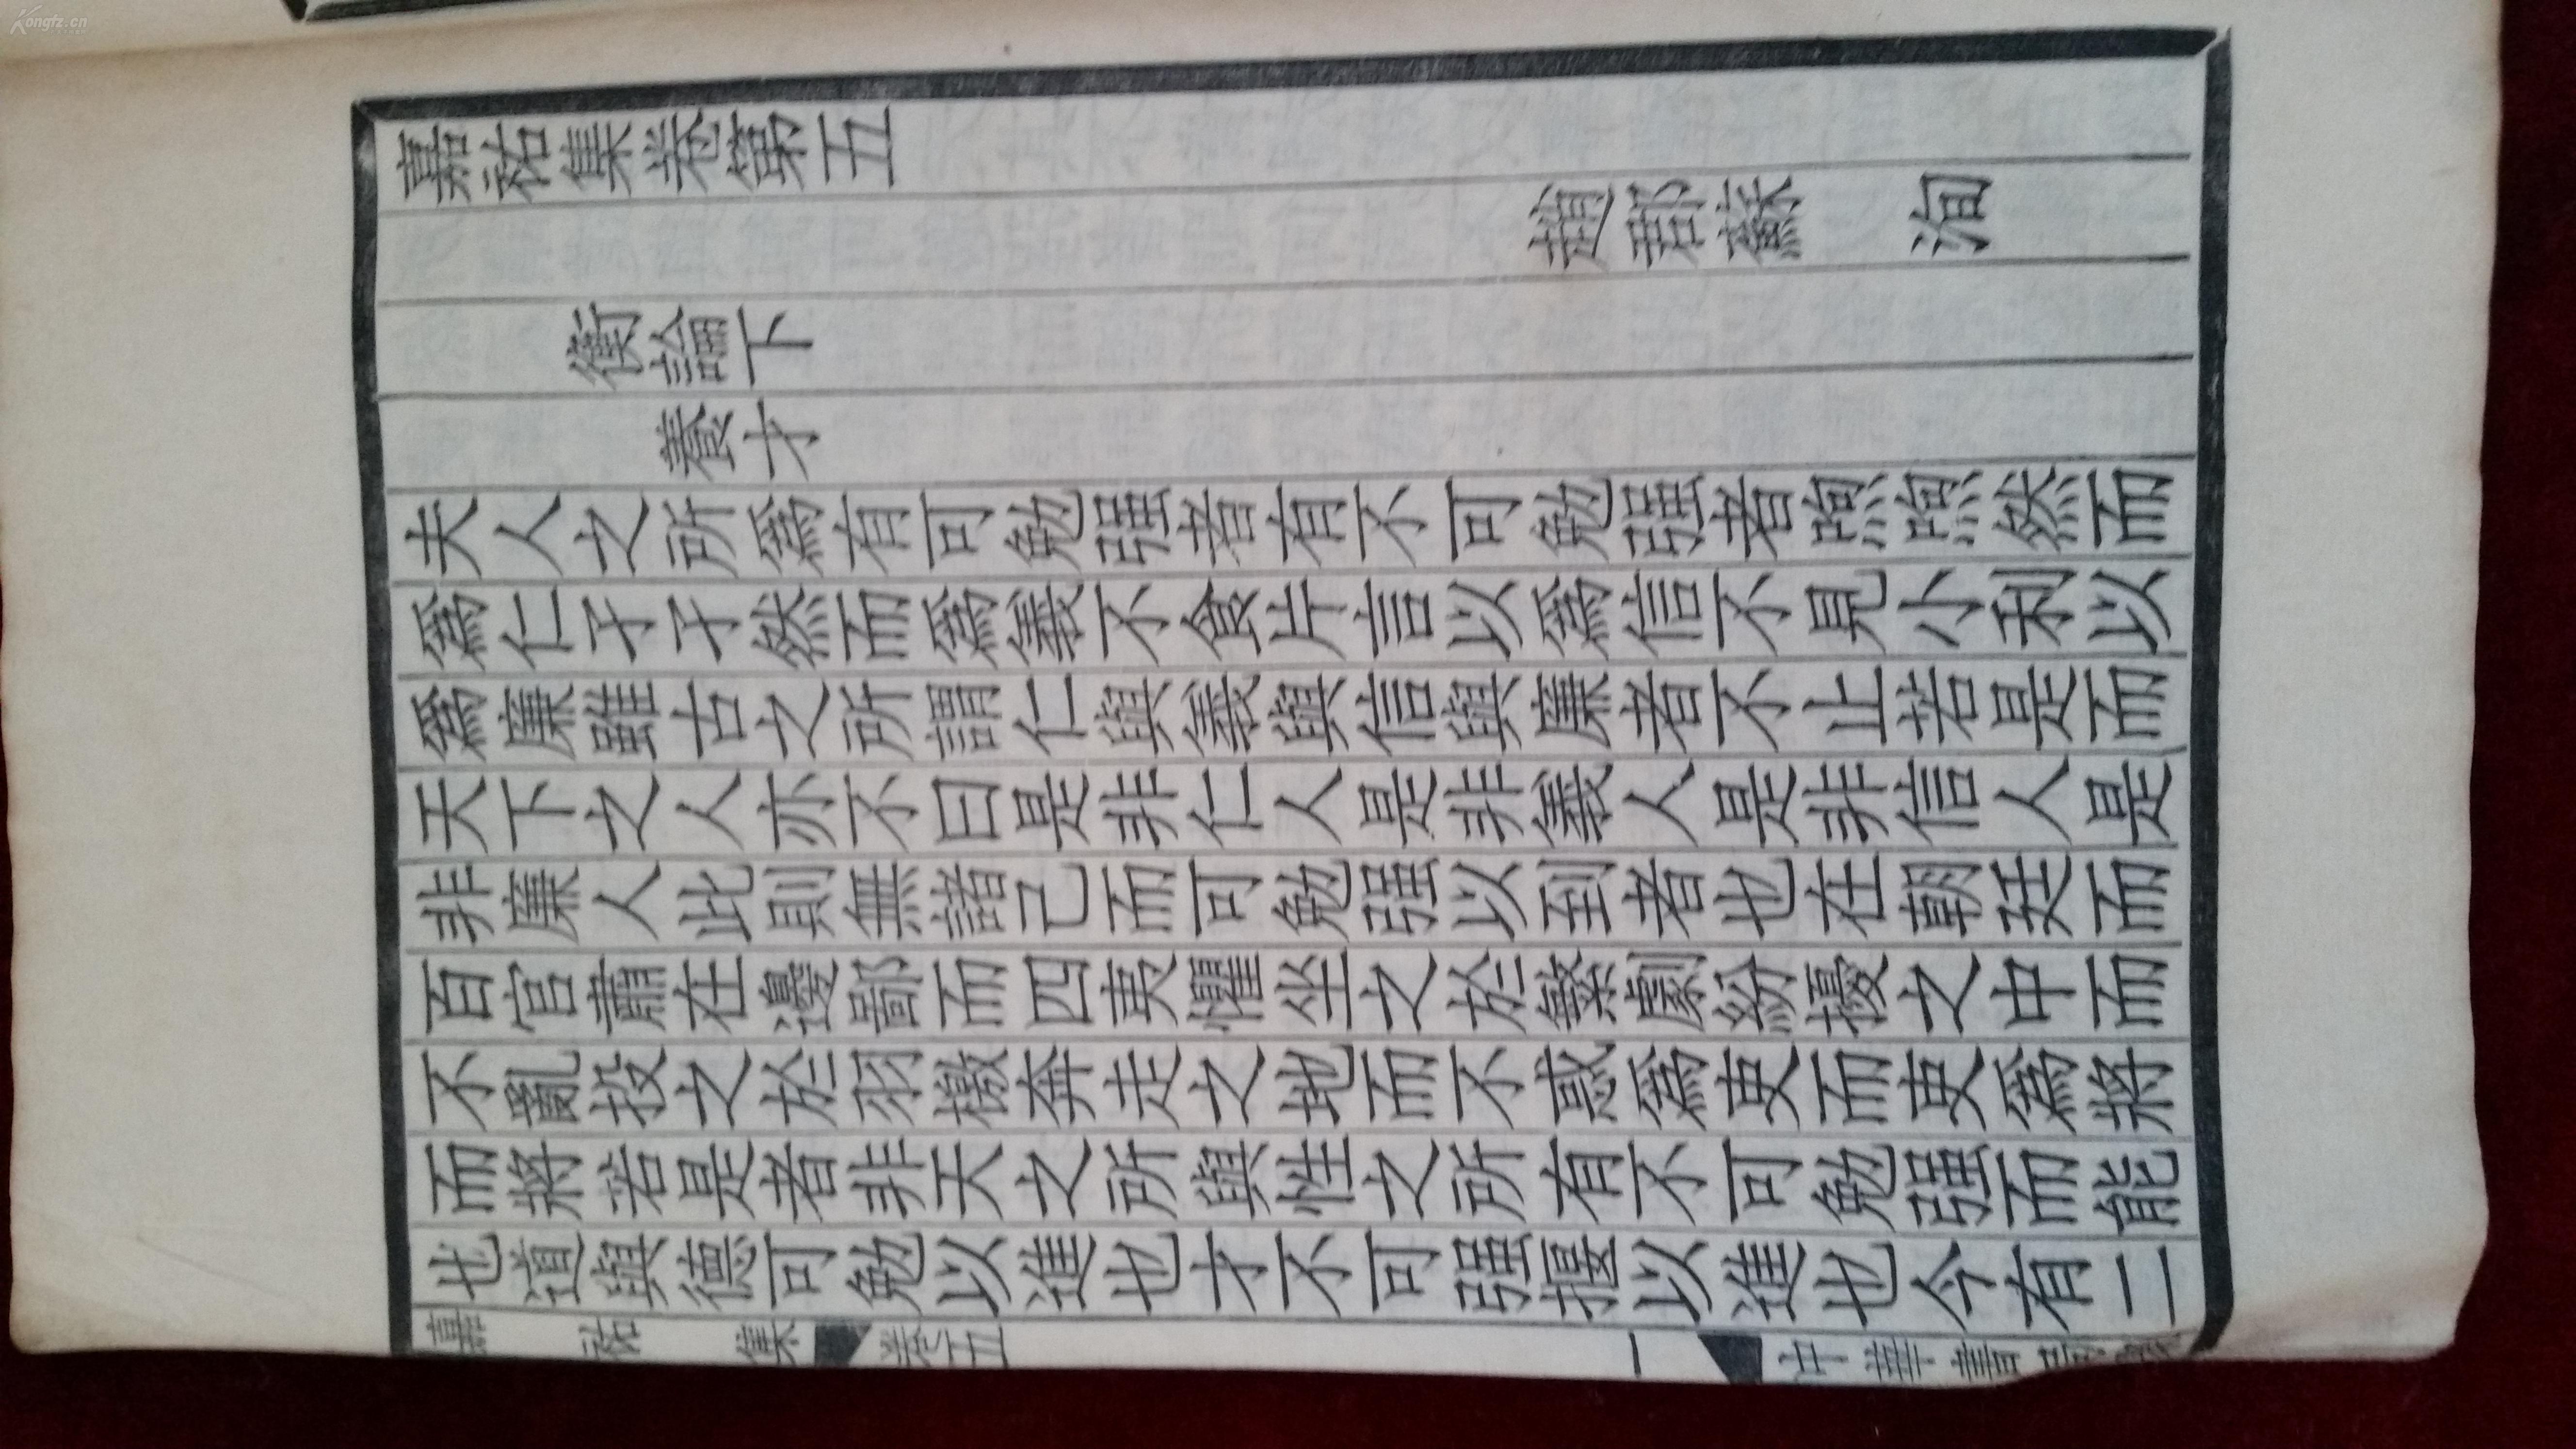 嘉祐集卷第五
趙郡蘇洵
衡論下
養才
夫人之所爲有可勉強者有不可勉強者煦煦然而
爲仁孑孑然而爲義不食片言以爲信不見小利以
爲廉雖古之所謂仁與義與信與廉者不止若是而
天下之人亦不曰是非仁人是非義人是非信人是
非廉人此則無諸己而可勉強以到者也在朝廷而
百官肅在邊鄙而四夷懼坐之於繁劇紛擾之中而
不亂投之於羽檄奔走之地而不惑爲吏而吏爲將
而將若是者非天之所與性之所有不可勉強而能
也道與德可勉以進也才不可強揠以進也今有二
嘉祐集 卷五 一 中華書局
Kongfz.cn